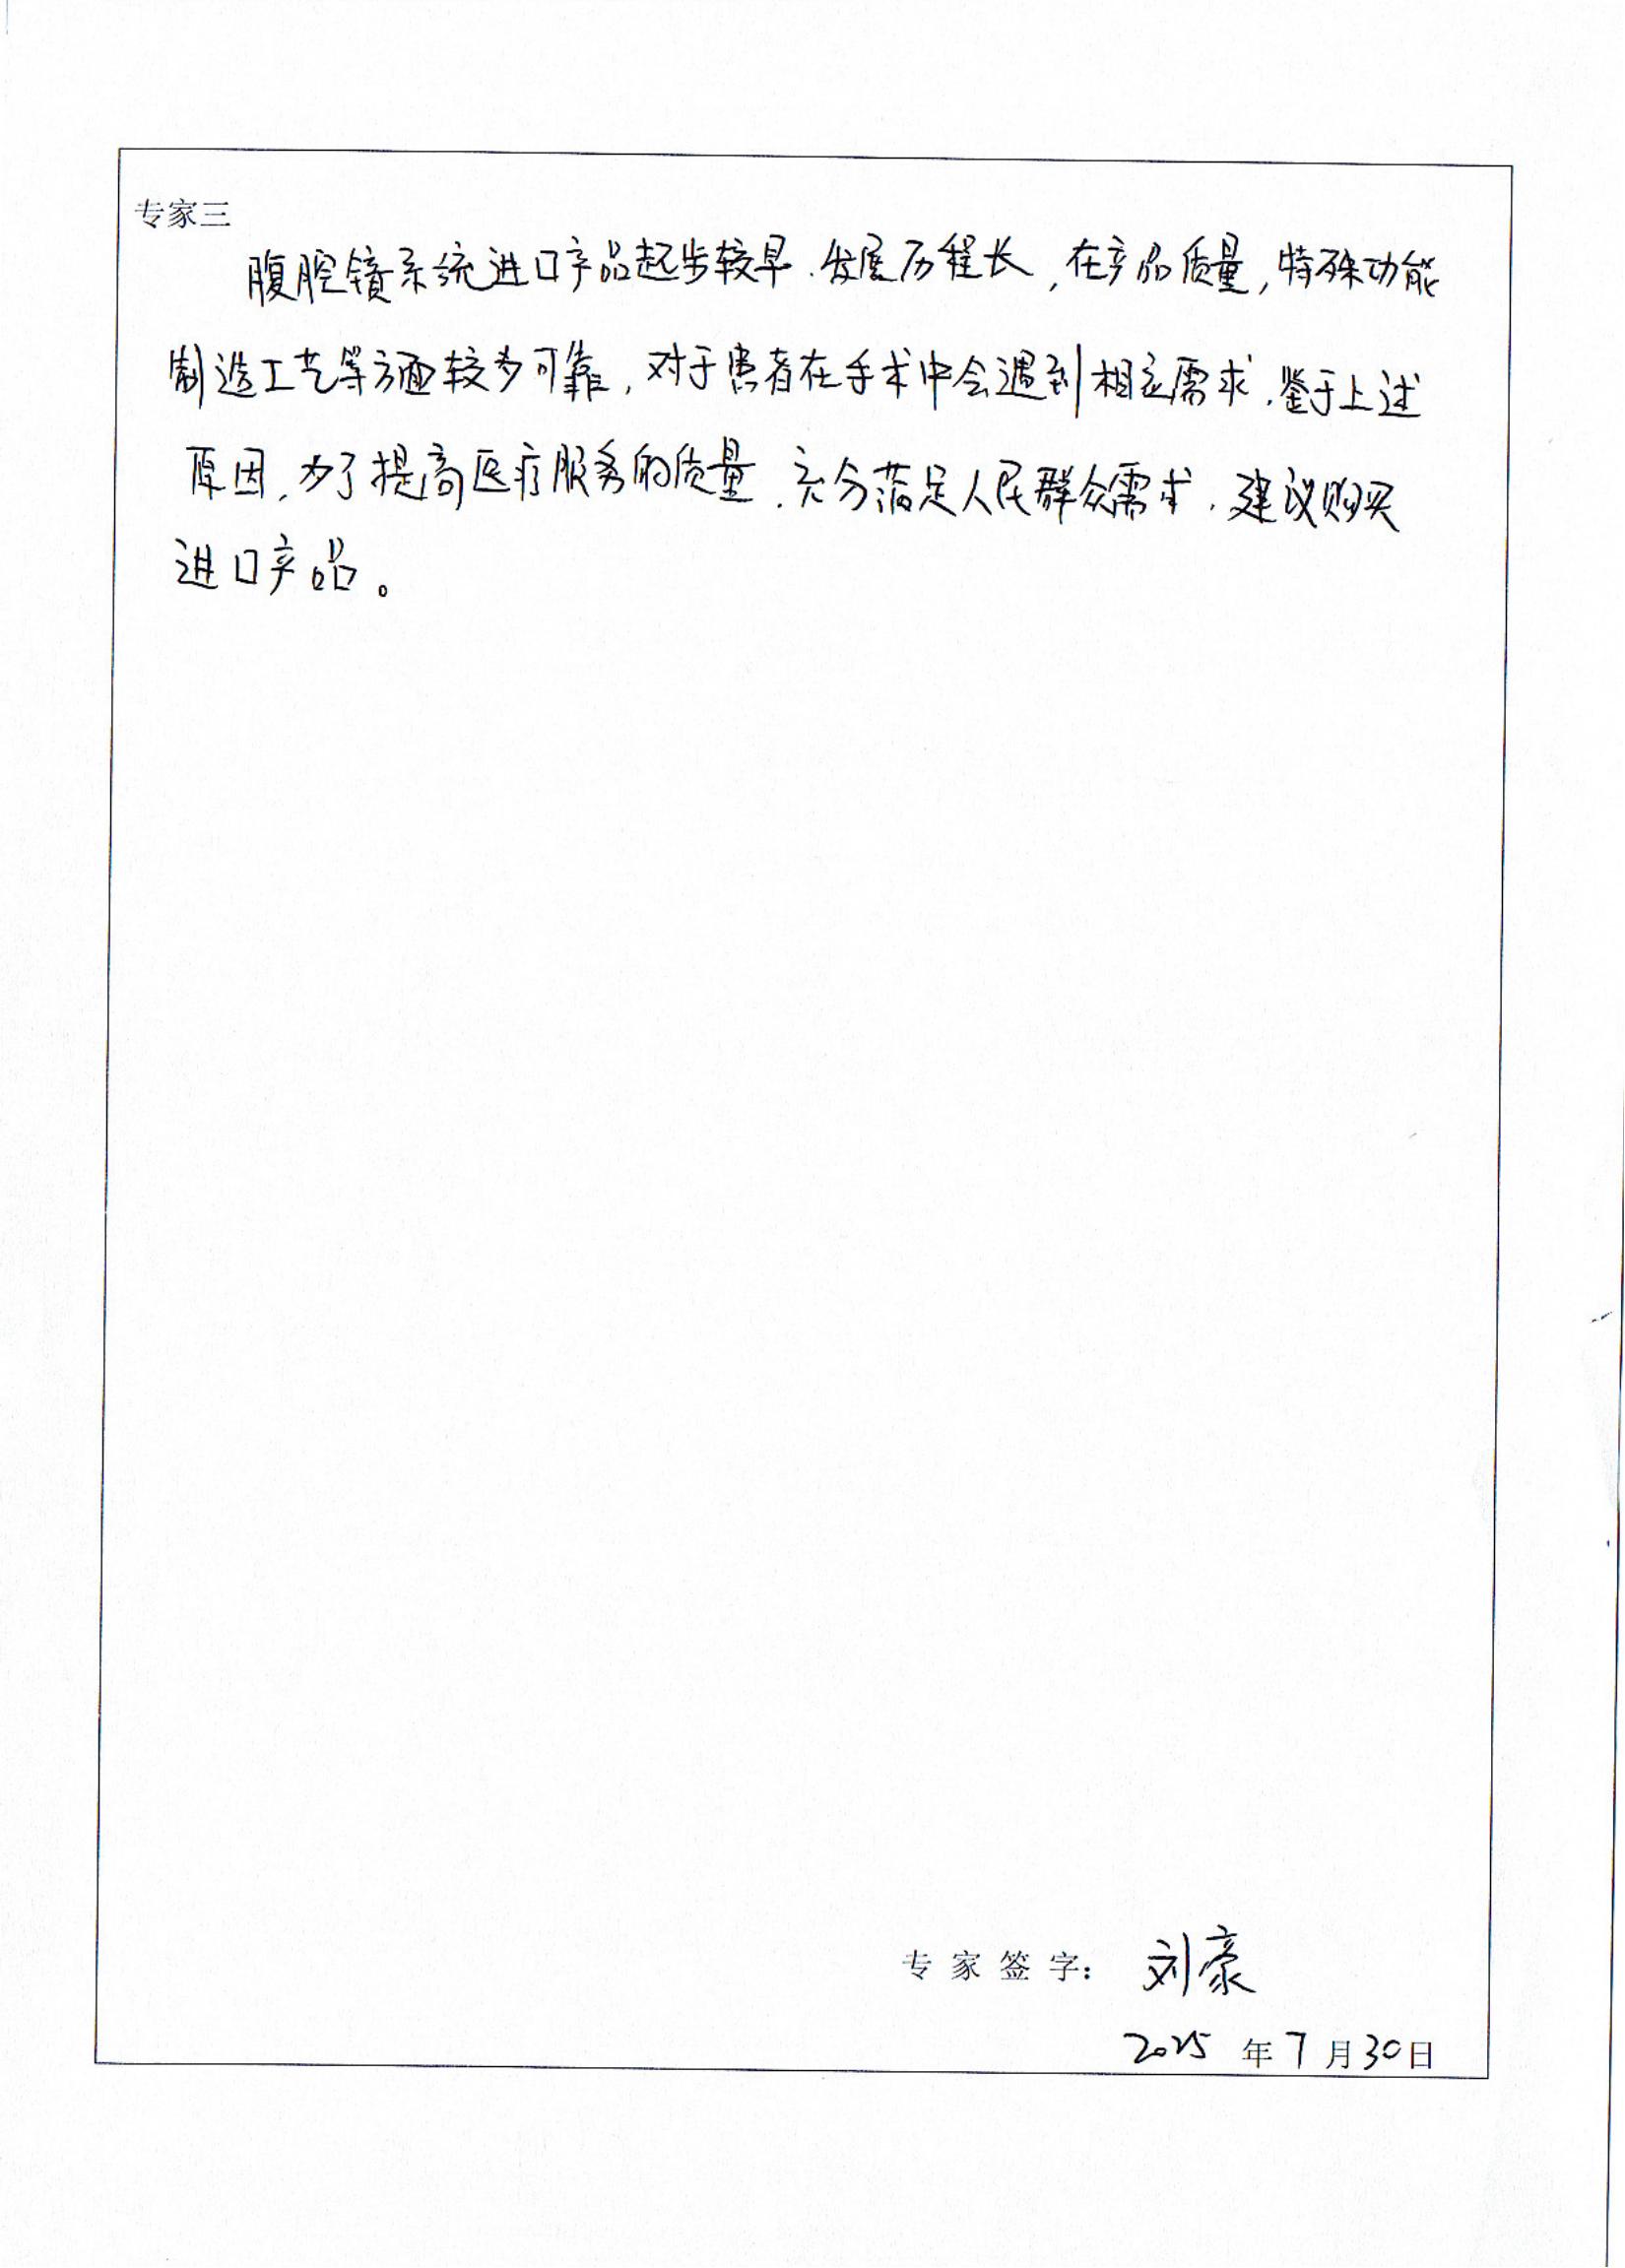 专家三
腹腔镜系统进口产品起步较早.发展历程长,在产品质量,特殊功能
制造工艺等方面较为可靠,对于患者在手术中会遇到相应需求.鉴于上述
原因,为了提高医疗服务的质量.充分满足人民群众需求.建议购买
进口产品。
专家签字: 刘豪
2025年7月30日